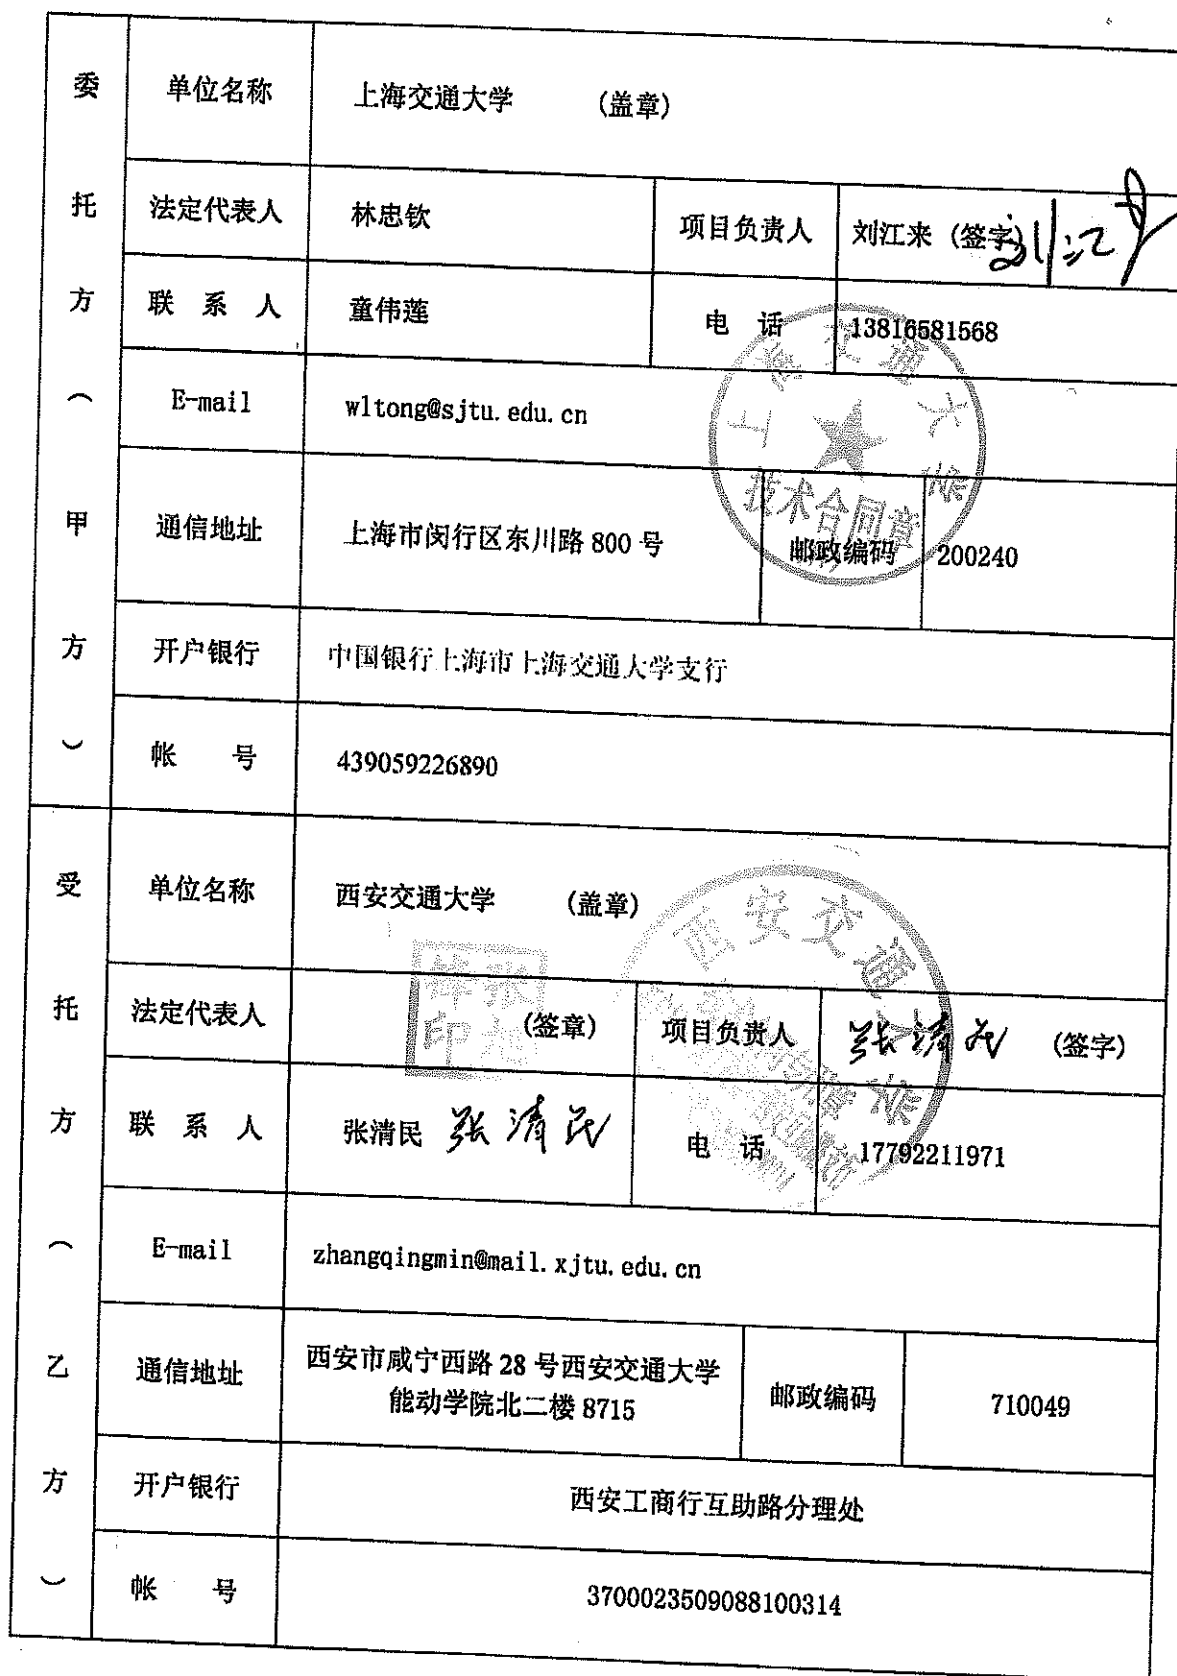 委托方（甲方）
单位名称 上海交通大学 （盖章）
法定代表人 林忠钦 项目负责人 刘江来（签字）刘江来
联 系 人 童伟莲 电 话 13816581568
E-mail wltong@sjtu.edu.cn
上海交通大学
技术合同章
通信地址 上海市闵行区东川路 800 号 邮政编码 200240
开户银行 中国银行上海市上海交通大学支行
帐 号 439059226890
受托方（乙方）
单位名称 西安交通大学 （盖章）
西安交通大学
法定代表人 （签章） 项目负责人 张清民 （签字）
张旭锋印
联 系 人 张清民 张清民 电 话 17792211971
E-mail zhangqingmin@mail.xjtu.edu.cn
通信地址 西安市咸宁西路 28 号西安交通大学
能动学院北二楼 8715 邮政编码 710049
开户银行 西安工商行互助路分理处
帐 号 3700023509088100314